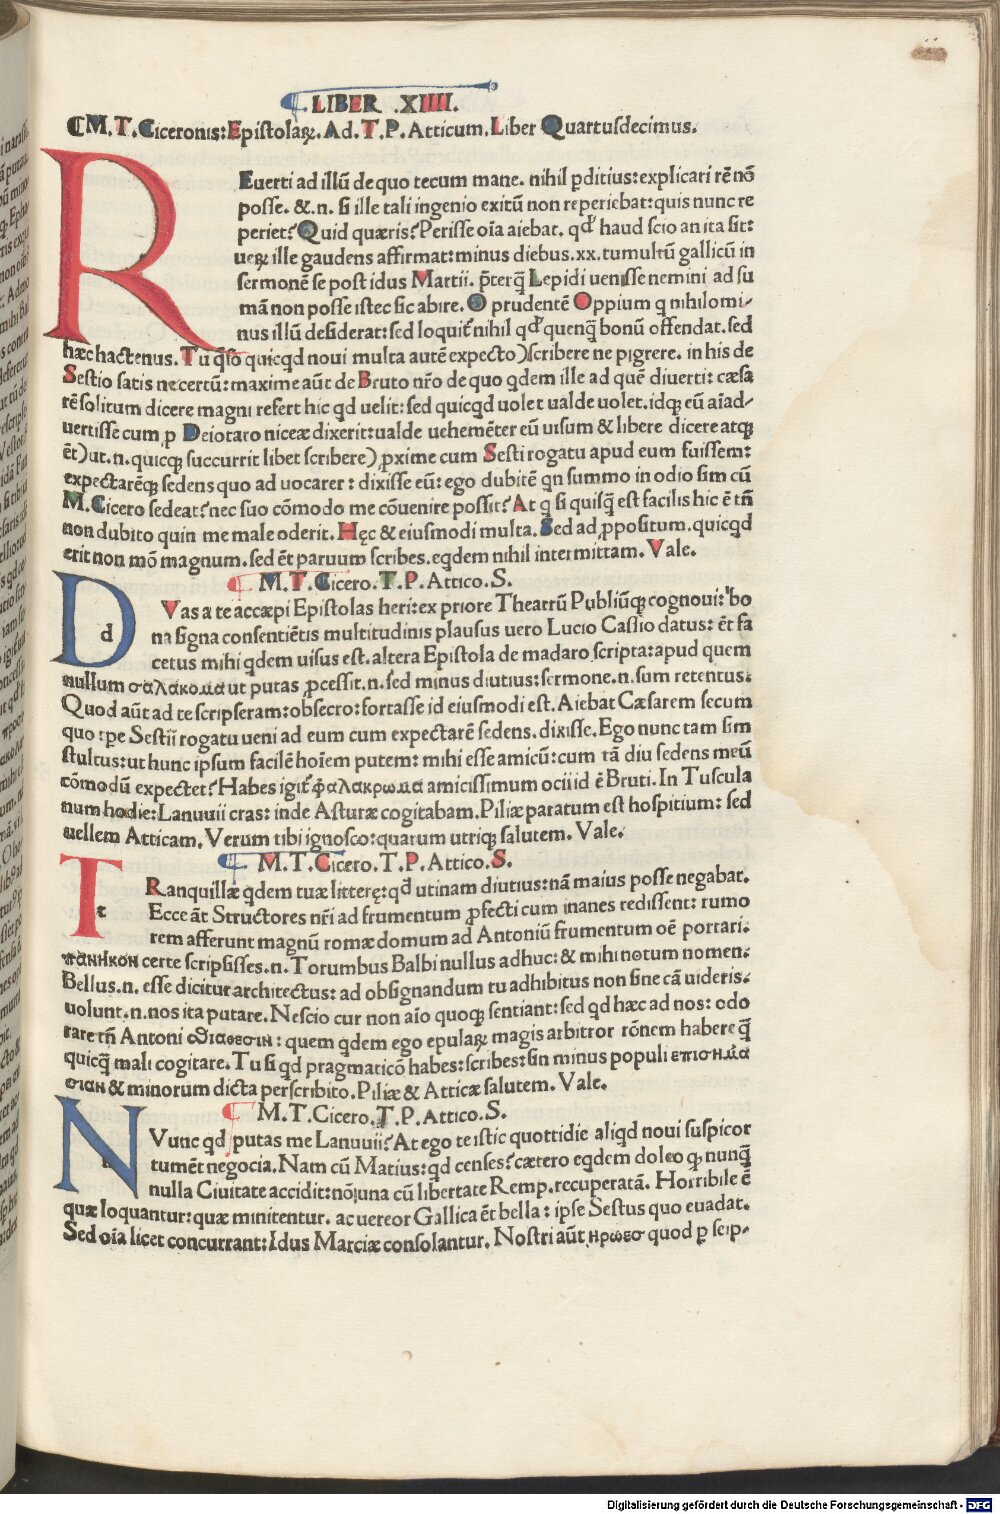 LIBER .XIIII.
M.T.Ciceronis:Epistolaꝝ.Ad.T.P.Atticum.Liber Quartusdecimus.
REuerti ad illũ de quo tecum mane. nihil ꝑditius:explicari rẽ nõ
posse. &.n. si ille tali ingenio exitũ non reperiebat:quis nunc re
periet? Quid quæris? Perisse oĩa aiebat. qđ haud scio an ita sit:
ueꝝ ille gaudens affirmat:minus diebus.xx.tumultũ gallicũ in
sermonẽ se post idus Martii. p̃terq̃ Lepidi uenisse nemini ad su
mã non posse istec sic abire. O prudentẽ Oppium q nihilomi-
nus illũ desiderat:sed loquit̃ nihil qđ quenq̃ bonũ offendat.sed
hæc hactenus. Tu q̃so quicqd noui multa autẽ expecto)scribere ne pigrere. in his de
Sestio satis ne certũ: maxime aũt de Bruto nr̃o de quo qdem ille ad quẽ diuerti: cæsa
rẽ solitum dicere magni refert hic qd uelit:sed quicqd uolet ualde uolet.idqꝫ eũ aĩad-
uertisse cum ꝓ Deiotaro niceæ dixerit:ualde uehemẽter eũ uisum & libere dicere atqꝫ
ẽt)ut.n.quicqꝫ succurrit libet scribere)ꝓxime cum Sesti rogatu apud eum fuissem:
expectarẽqꝫ sedens quo ad uocarer: dixisse eũ: ego dubitẽ qn summo in odio sim cũ
M.Cicero sedeat? nec suo cõmodo me cõuenire possit? At q si quisq̃ est facilis hic ẽ tñ
non dubito quin me male oderit. Hęc & eiusmodi multa. Sed ad ꝓpositum.quicqd
erit non mõ magnum.sed ẽt paruum scribes.eqdem nihil intermittam. Vale.
M.T.Cicero.T.P.Attico.S.
D d Vas a te accæpi Epistolas heri:ex priore Theatrũ Publiũqꝫ cognoui:bo
na signa consentiẽtis multitudinis plausus uero Lucio Cassio datus: ẽt fa
cetus mihi qdem uisus est. altera Epistola de madaro scripta:apud quem
nullum σαλακομα ut putas ꝓcessit.n.sed minus diutius:sermone.n.sum retentus:
Quod aũt ad te scripseram:obsecro:fortasse id eiusmodi est. Aiebat Cæsarem secum
quo :pe Sestii rogatu ueni ad eum cum expectarẽ sedens. dixisse. Ego nunc tam sim
stultus:ut hunc ipsum facilẽ hoĩem putem: mihi esse amicũ:cum tã diu sedens meũ
cõmodũ expectet? Habes igit̃ φαλακρωμα amicissimum ocii id ẽ Bruti. In Tuscula
num hodie:Lanuuii cras: inde Asturæ cogitabam. Piliæ paratum est hospitium: sed
uellem Atticam. Verum tibi ignosco:quarum utriqꝫ salutem. Vale.
M.T.Cicero.T.P.Attico.S.
T t Ranquillæ qdem tuæ litterę:qđ utinam diutius:nã maius posse negabat.
Ecce ãt Structores nr̃i ad frumentum ꝓfecti cum inanes redissent: rumo
rem afferunt magnũ romæ domum ad Antoniũ frumentum oẽ portari.
πανικον certe scripsisses.n.Torumbus Balbi nullus adhuc: & mihi notum nomen:
Bellus.n. esse dicitur architectus: ad obsignandum tu adhibitus non sine cã uideris:
uolunt.n.nos ita putare. Nescio cur non aĩo quoqꝫ sentiant:sed qd hæc ad nos: odo
rare tñ Antoni διαθεσιν: quem qdem ego epulaꝝ magis arbitror rõnem habere q̃
quicq̃ mali cogitare. Tu si qd pragmaticõ habes:scribes:sin minus populi επισημα
σιαν & minorum dicta perscribito. Piliæ & Atticæ salutem. Vale.
M.T.Cicero.T.P.Attico.S.
N Vunc qd putas me Lanuuii? At ego te istic quottidie aliqd noui suspicor
tumẽt negocia. Nam cũ Matius:qd censes? cætero eqdem doleo qꝫ nunq̃
nulla Ciuitate accidit:nõ una cũ libertate Remp.recuperatã. Horribile ẽ
quæ loquantur:quæ minitentur. ac uereor Gallica ẽt bella: ipse Sestus quo euadat.
Sed oĩa licet concurrant:Idus Marciæ consolantur. Nostri aũt ηρωεσ quod ꝑ seip-
Digitalisierung gefördert durch die Deutsche Forschungsgemeinschaft - DFG